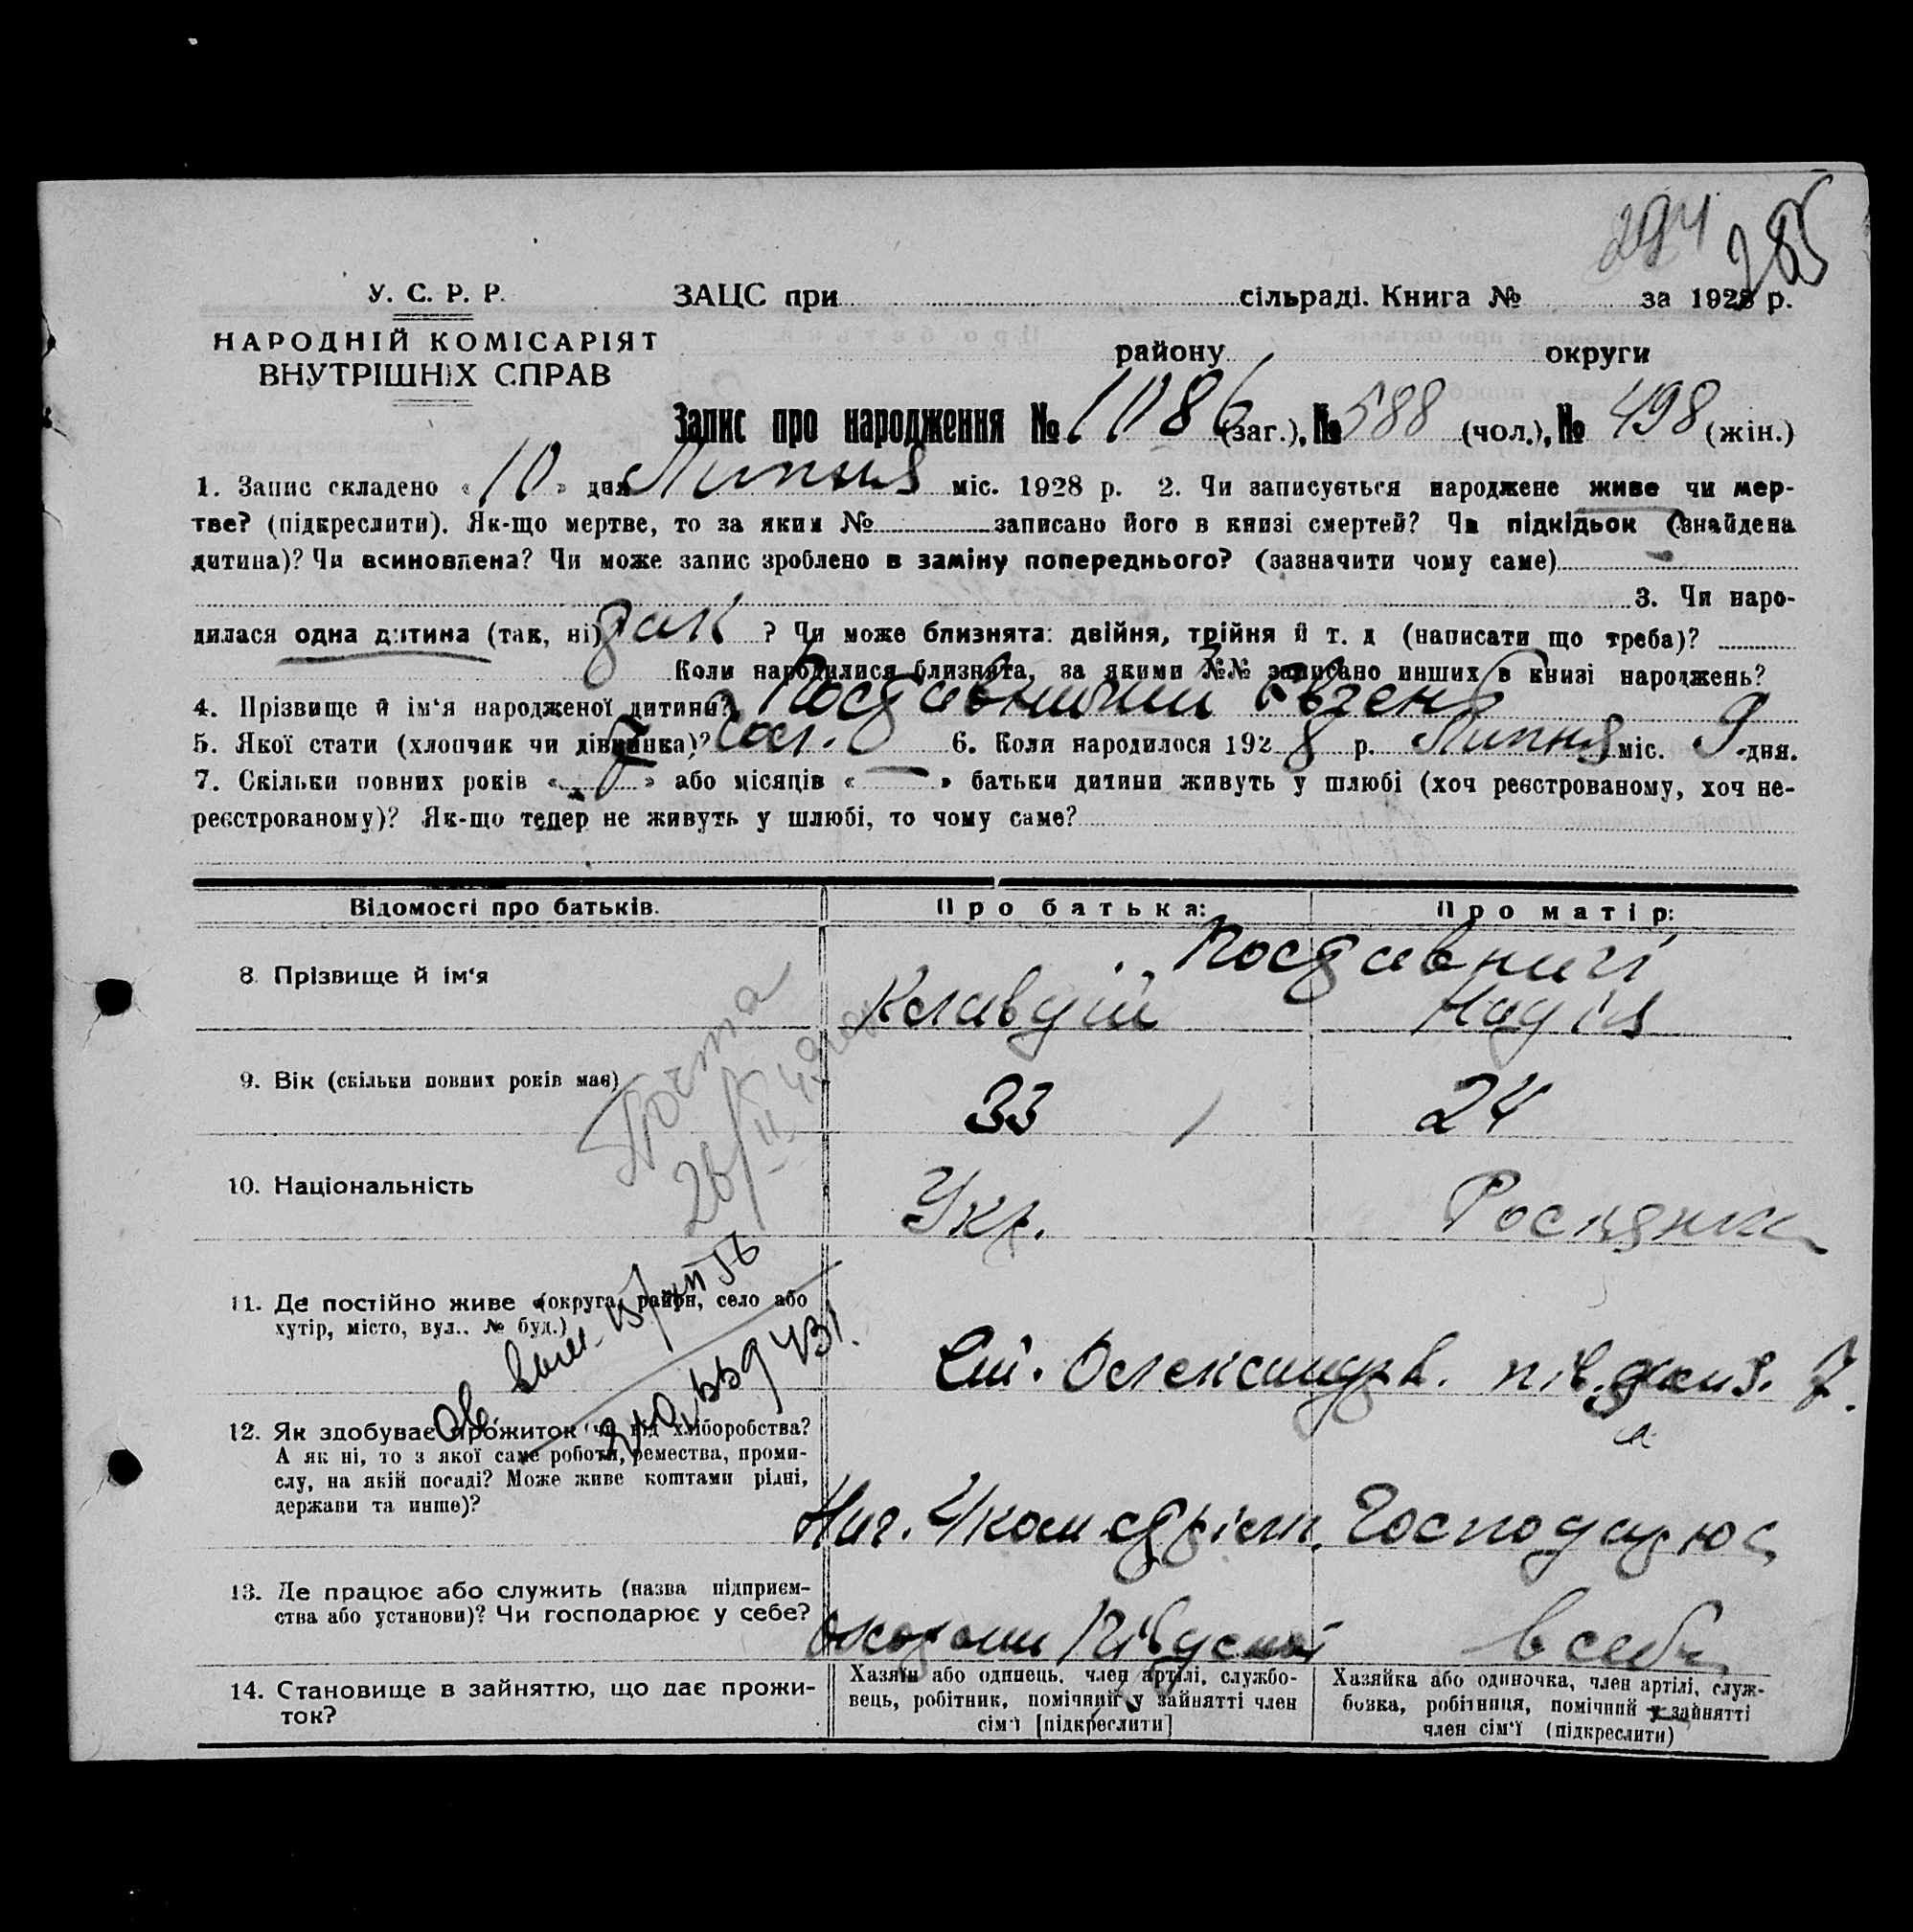 294 285
У. С. Р. Р.
ЗАЦС при сільраді. Книга № за 1928 р.
НАРОДНІЙ КОМІСАРІЯТ
ВНУТРІШНІХ СПРАВ
району округи
Запис про народження № 1086 (заг.), № 588 (чол.), № 498 (жін.)
1. Запис складено « 10 » дня Липня міс. 1928 р. 2. Чи записується народжене живе чи мер-
тве? (підкреслити). Як-що мертве, то за яким № записано його в книзі смертей? Чи підкідьок (знайдена
дитина)? Чи всиновлена? Чи може запис зроблено в заміну попереднього? (зазначити чому саме) -
3. Чи наро-
дилася одна дитина (так, ні) так ? Чи може близнята: двійня, трійня й т. д (написати що треба)?
Коли народилися близнята, за якими №№ записано инших в книзі народжень?
4. Прізвище й ім'я народженої дитини? Поставничий Євген
5. Якої стати (хлопчик чи дівчинка)? 6. Коли народилося 1928 р. Липня міс. 9 дня.
7. Скільки повних років « » або місяців « — » батьки дитини живуть у шлюбі (хоч реєстрованому, хоч не-
реєстрованому)? Як-що тепер не живуть у шлюбі, то чому саме?
Відомості про батьків. Про батька: Про матір:
Поставничі
8. Прізвище й ім'я Клавдій Надія
9. Вік (скільки повних років має) 33 24
10. Національність Укр. Росиянка
11. Де постійно живе (округа, район, село або
хутір, місто, вул.. № буд.)
Ст. Олександрів. 7.
12. Як здобуває прожиток (чи від хліборобства?
А як ні, то з якої саме роботи, ремества, проми-
слу, на якій посаді? Може живе коштами рідні,
держави та инше)?
Нач. Господарює
13. Де працює або служить (назва підприєм-
ства або установи)? Чи господарює у себе?
в себе
14. Становище в зайняттю, що дає прожи-
ток?
Хазяїн або одинець, член артілі, службо-
вець, робітник, помічний у зайнятті член
сім'ї [підкреслити]
Хазяйка або одиночка, член артілі, служ-
бовка, робітниця, помічний у зайнятті
член сім'ї (підкреслити)